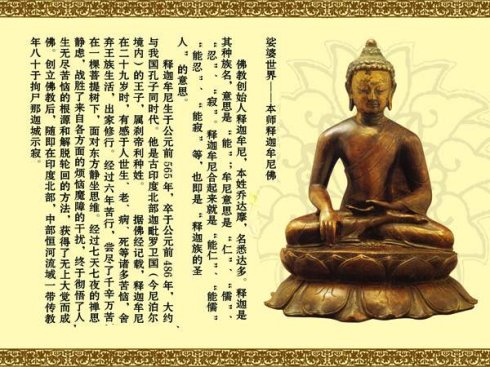 娑婆世界——本师释迦牟尼佛
佛教创始人释迦牟尼，本姓乔达摩，名悉达多。释迦是
其种族名，意思是“能”；牟尼意思是“仁”、“儒”、
“忍”、“寂”。释迦牟尼合起来就是“能仁”、“能儒”
“能忍”、“能寂”等，也即是“释迦族的圣
人”的意思。
释迦牟尼生于公元前565年，卒于公元前486年，大约
与我国孔子同时代。他是古印度北部迦毗罗卫国（今尼泊尔
境内）的王子，属刹帝利种姓。 据佛经记载，释迦牟尼
在二十九岁时，有感于人世生、老、病、死等诸多苦恼，舍
弃王族生活，出家修行。经过六年苦行，尝尽了千辛万苦
在一棵菩提树下，面对东方静坐思维。经过七天七夜的禅思
静虑，战胜了来自各方面的烦恼魔障的干扰，终于彻悟了人
生无尽苦恼的根源和解脱轮回的方法，获得了无上大觉而成
佛。创立佛教后，随即在印度北部，中部恒河流域一带传教
年八十于拘尸那迦城示寂。